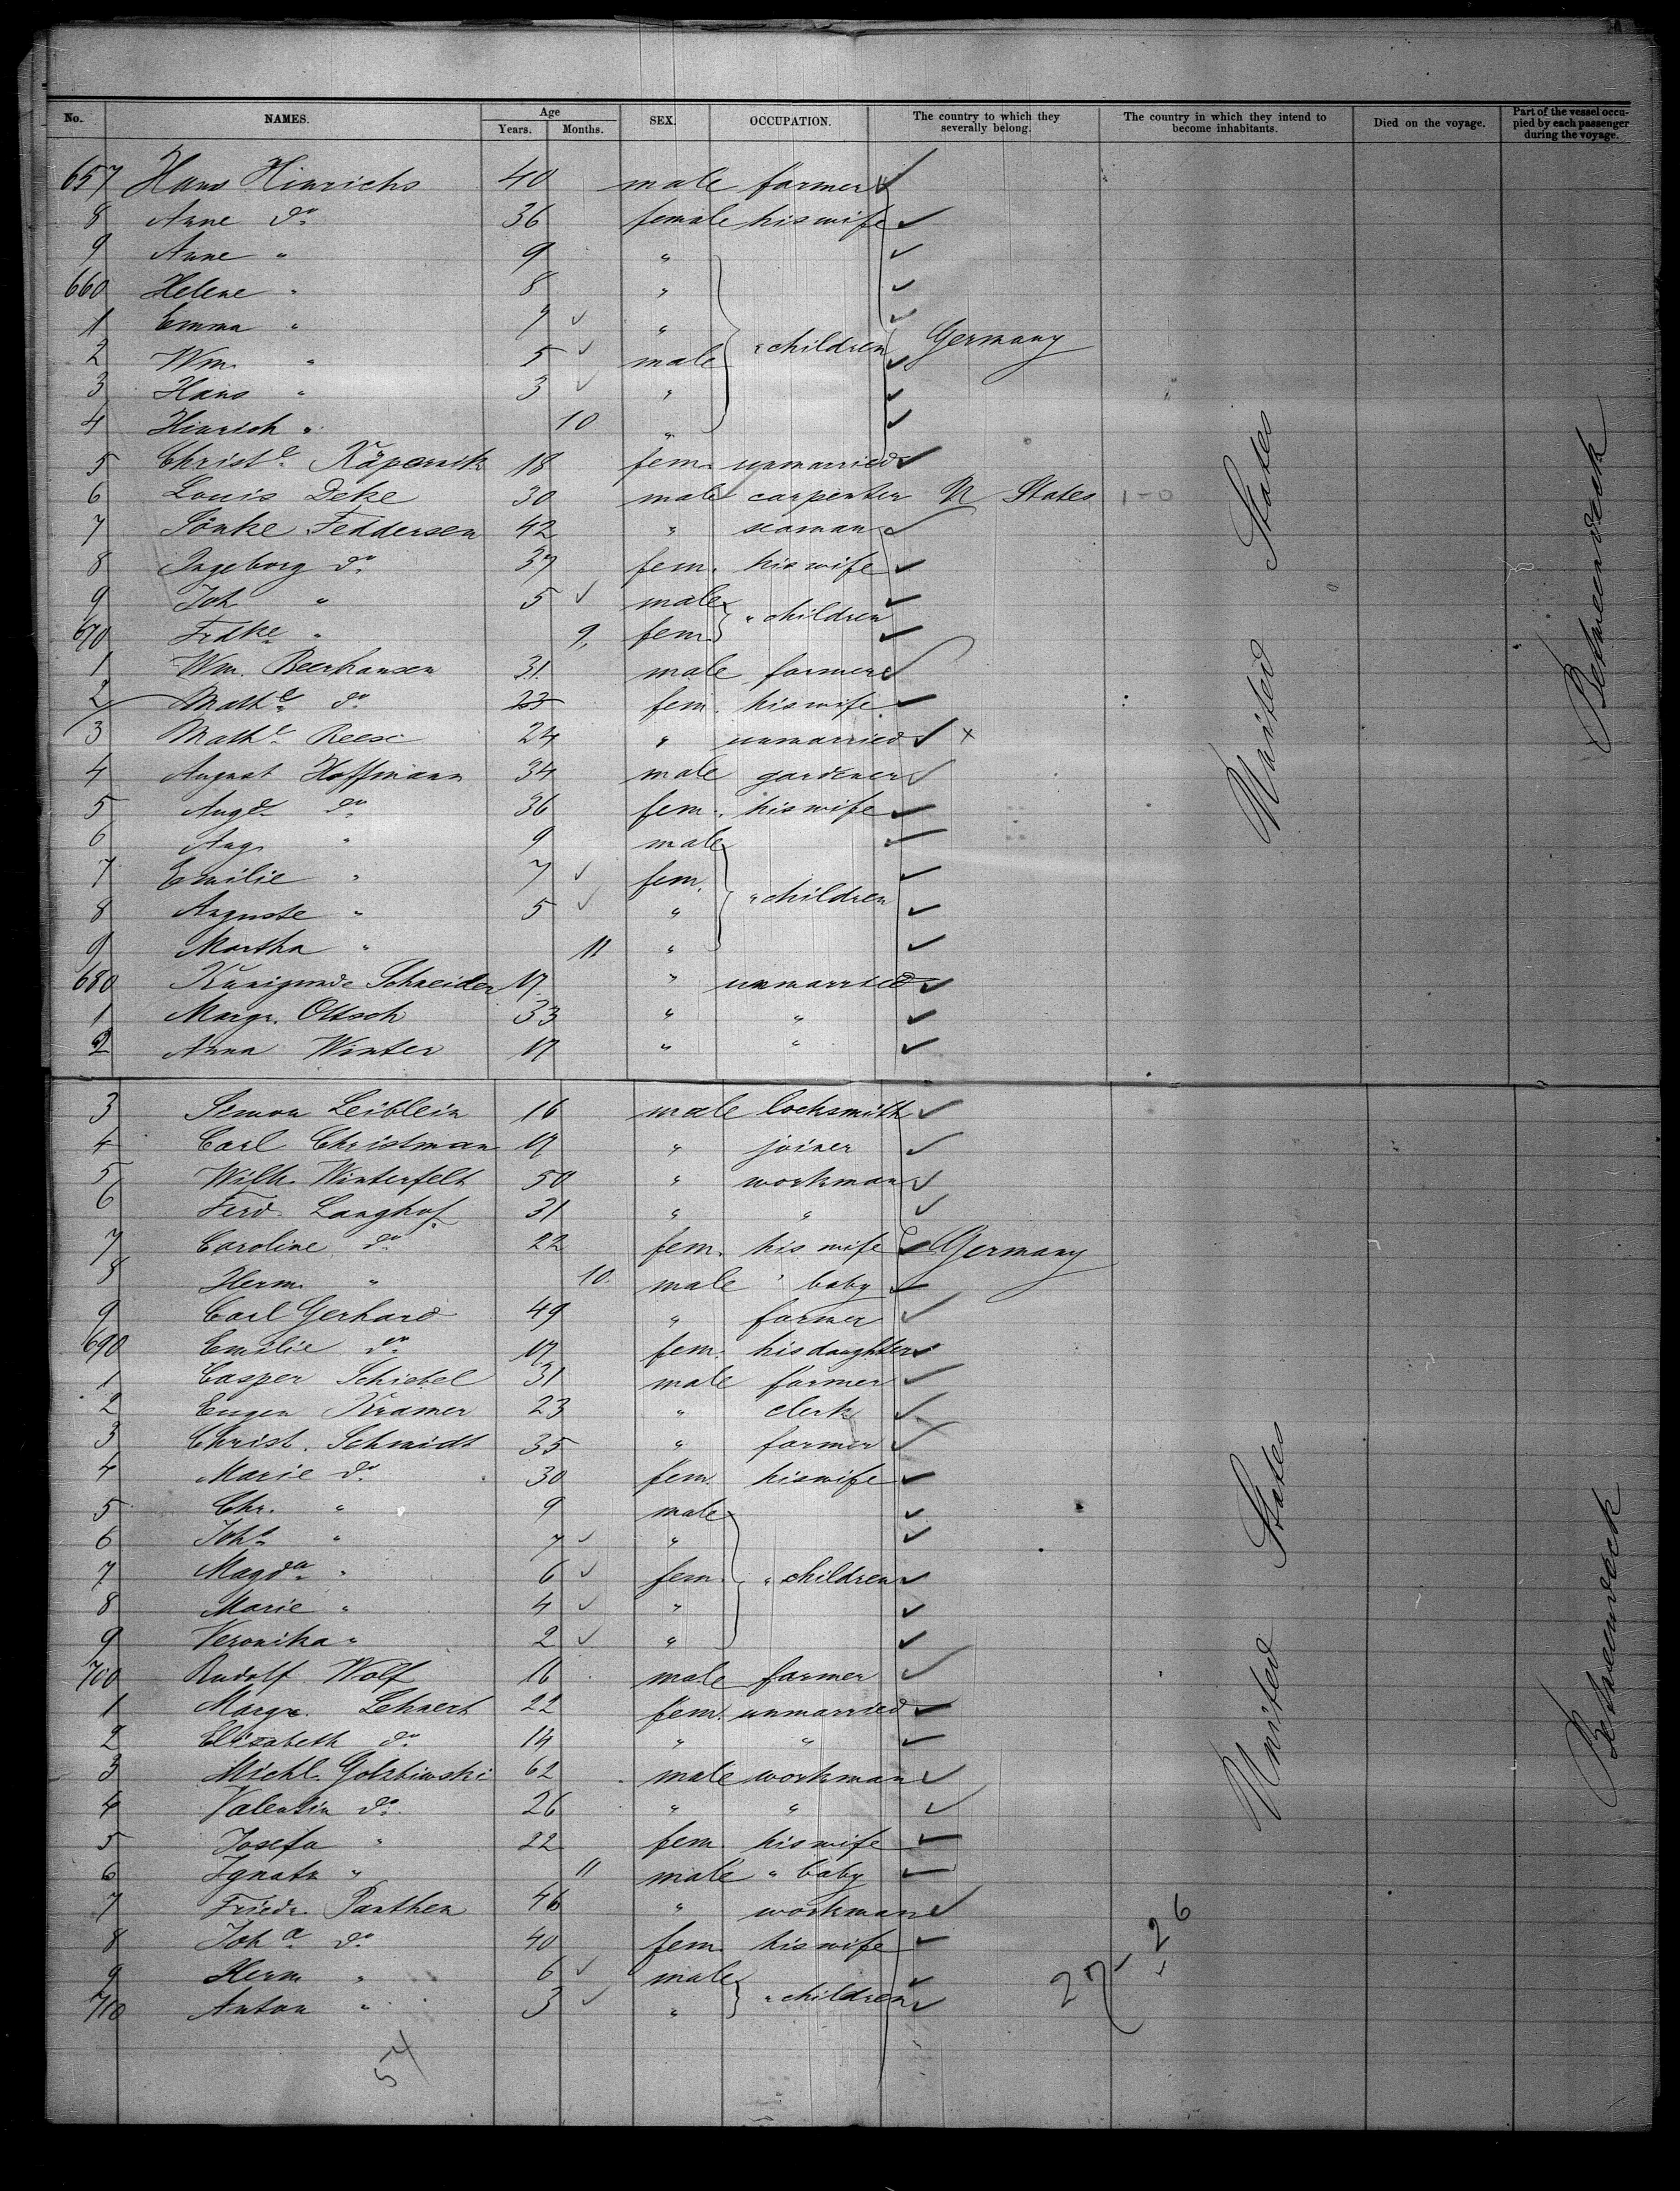 No. NAMES. Age Years. Months. SEX. OCCUPATION. The country to which they severally belong. The country in which they intend to become inhabitants. Died on the voyage. Part of the vessel occupied by each passenger during the voyage.
657 Hans Hinrichs 40 male farmer
8 Anne do. 36 female his wife
9 Anne " 9 "
660 Helene " 8 "
1 Emma " 7 "
2 Wm. " 5 male " children Germany
3 Hans " 3 "
4 Hinrich " 10 "
5 Christe. Käpernik 18 fem. unmarried
6 Louis Deke 30 male carpenter U States 1-0
7 Sönke Feddersen 42 " seaman
8 Ingeborg do. 37 fem. his wife
9 Joh " 5 male " children
670 Frdke " 9 fem.
1 Wm. Beerhansen 31 male farmer
2 Mathe. do. 23 fem. his wife
3 Mathe. Reese 24 " unmarried x
4 August Hoffmann 34 male gardener
5 Auge. do. 36 fem. his wife
6 Aug. " 9 male
7 Emilie " 7 fem.
8 Auguste " 5 " " children
9 Martha " 11 "
680 Kunigunde Schneider 17 " unmarried
1 Margr. Ottsch 33 " "
2 Anna Winter 17 " "
United States
Betweendeck
3 Simon Leiblein 16 male locksmith
4 Carl Christman 17 " joiner
5 Wilh. Winterfelt 50 " workman
6 Ferd. Langhof 31 " "
7 Caroline do. 22 fem. his wife Germany
8 Herm. " 10 male " baby
9 Carl Gerhard 49 " farmer
690 Emilie do. 17 fem. his daughter
1 Casper Schiebel 31 male farmer
2 Eugen Kramer 23 " clerk
3 Christ. Schmidt 35 " farmer
4 Marie do. 30 fem. his wife
5 Chr. " 9 male
6 Joh. " 7 "
7 Magda. " 6 fem. " children
8 Marie " 4 "
9 Veronika " 2 "
700 Rudolf Wolf 16 male farmer
1 Margr. Lehnert 22 fem. unmarried
2 Elisabeth do. 14 " "
3 Michl. Golzbiwski 62 male workman
4 Valentin do. 26 " "
5 Josefa " 22 fem. his wife
6 Ignatz " 11 male " baby
7 Friedr. Panthen 46 " workman
8 Joha. do. 40 fem. his wife
9 Herm " 6 male
710 Anton " 3 " " children
United States
Betweendeck
27 - 26
54